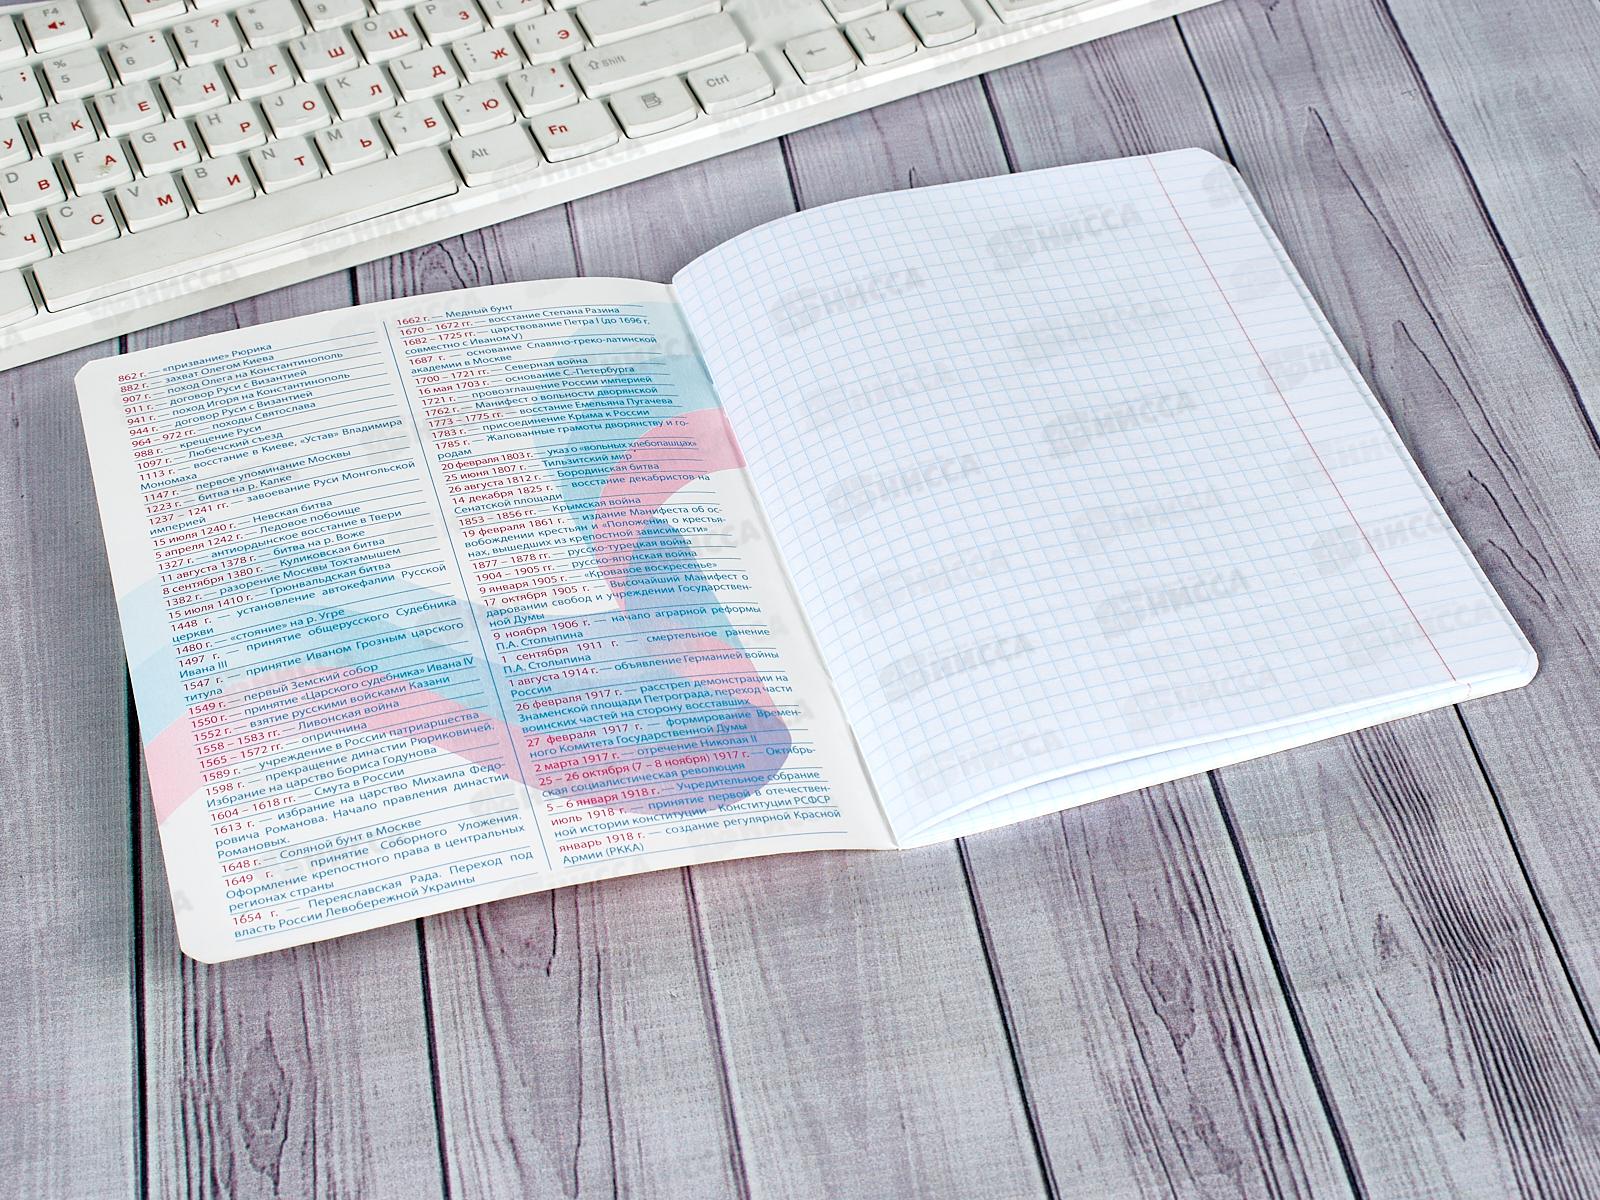 862 г. — «призвание» Рюрика
882 г. — захват Олегом Киева
907 г. — поход Олега на Константинополь
911 г. — договор Руси с Византией
941 г. — поход Игоря на Константинополь
944 г. — договор Руси с Византией
964 – 972 гг. — походы Святослава
988 г. — крещение Руси
1097 г. — Любечский съезд
1113 г. — восстание в Киеве, «Устав» Владимира
Мономаха
1147 г. — первое упоминание Москвы
1223 г. — битва на р. Калке
1237 – 1241 гг. — завоевание Руси Монгольской
империей
15 июля 1240 г. — Невская битва
5 апреля 1242 г. — Ледовое побоище
1327 г. — антиордынское восстание в Твери
11 августа 1378 г. — битва на р. Воже
8 сентября 1380 г. — Куликовская битва
1382 г. — разорение Москвы Тохтамышем
15 июля 1410 г. — Грюнвальдская битва
1448 г. — установление автокефалии Русской
церкви
1480 г. — «стояние» на р. Угре
1497 г. — принятие общерусского Судебника
Ивана III
1547 г. — принятие Иваном Грозным царского
титула
1549 г. — первый Земский собор
1550 г. — принятие «Царского судебника» Ивана IV
1552 г. — взятие русскими войсками Казани
1558 – 1583 гг. — Ливонская война
1565 – 1572 гг. — опричнина
1589 г. — учреждение в России патриаршества
1598 г. — прекращение династии Рюриковичей.
Избрание на царство Бориса Годунова
1604 – 1618 гг. — Смута в России
1613 г. — избрание на царство Михаила Федо-
ровича Романова. Начало правления династии
Романовых.
1648 г. — Соляной бунт в Москве
1649 г. — принятие Соборного Уложения.
Оформление крепостного права в центральных
регионах страны
1654 г. — Переяславская Рада. Переход под
власть России Левобережной Украины
1662 г. — Медный бунт
1670 – 1672 гг. — восстание Степана Разина
1682 – 1725 гг. — царствование Петра I (до 1696 г.
совместно с Иваном V)
1687 г. — основание Славяно-греко-латинской
академии в Москве
1700 – 1721 гг. — Северная война
16 мая 1703 г. — основание С.-Петербурга
1721 г. — провозглашение России империей
1762 г. — Манифест о вольности дворянской
1773 – 1775 гг. — восстание Емельяна Пугачева
1783 г. — присоединение Крыма к России
1785 г. — Жалованные грамоты дворянству и го-
родам
20 февраля 1803 г. — указ о «вольных хлебопашцах»
25 июня 1807 г. — Тильзитский мир
26 августа 1812 г. — Бородинская битва
14 декабря 1825 г. — восстание декабристов на
Сенатской площади
1853 – 1856 гг. — Крымская война
19 февраля 1861 г. — издание Манифеста об ос-
вобождении крестьян и «Положения о крестья-
нах, вышедших из крепостной зависимости»
1877 – 1878 гг. — русско-турецкая война
1904 – 1905 гг. — русско-японская война
9 января 1905 г. — «Кровавое воскресенье»
17 октября 1905 г. — Высочайший Манифест о
даровании свобод и учреждении Государствен-
ной Думы
9 ноября 1906 г. — начало аграрной реформы
П.А. Столыпина
1 сентября 1911 г. — смертельное ранение
П.А. Столыпина
1 августа 1914 г. — объявление Германией войны
России
26 февраля 1917 г. — расстрел демонстрации на
Знаменской площади Петрограда, переход части
воинских частей на сторону восставших
27 февраля 1917 г. — формирование Времен-
ного Комитета Государственной Думы
2 марта 1917 г. — отречение Николая II
25 – 26 октября (7 – 8 ноября) 1917 г. — Октябрь-
ская социалистическая революция
5 – 6 января 1918 г. — Учредительное собрание
июль 1918 г. — принятие первой в отечествен-
ной истории конституции – Конституции РСФСР
январь 1918 г. — создание регулярной Красной
Армии (РККА)
Shift
Ctrl
Alt
Fn
F4
НИССА